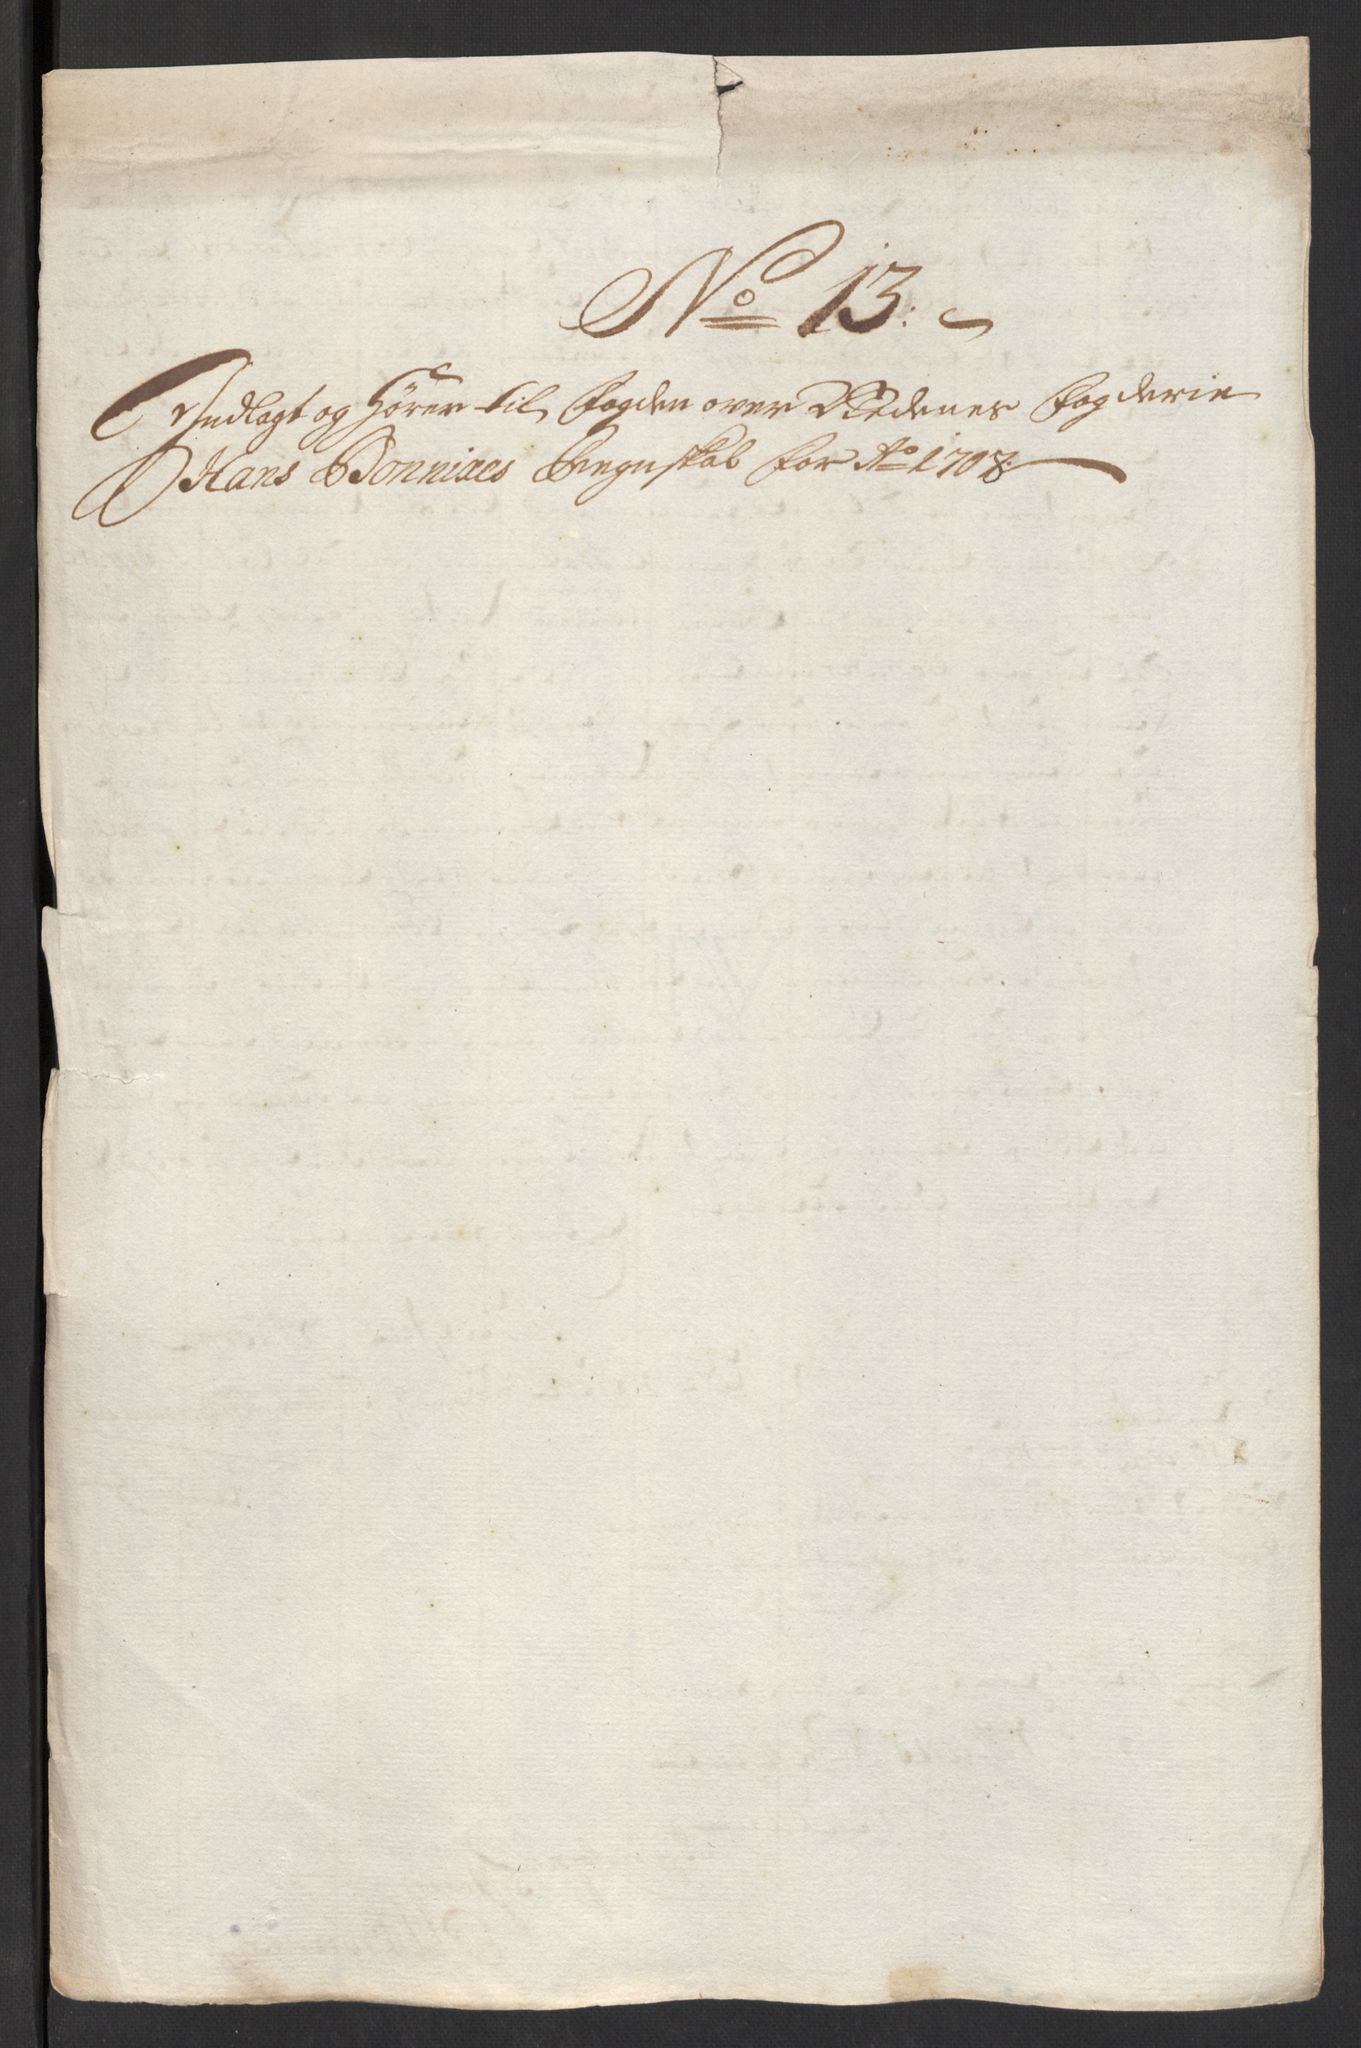 No 13:
Indlagt og Hörer til Fogden over Nedenes Fogderie
Hans Bonniaes Regnskab for Ao 1708: